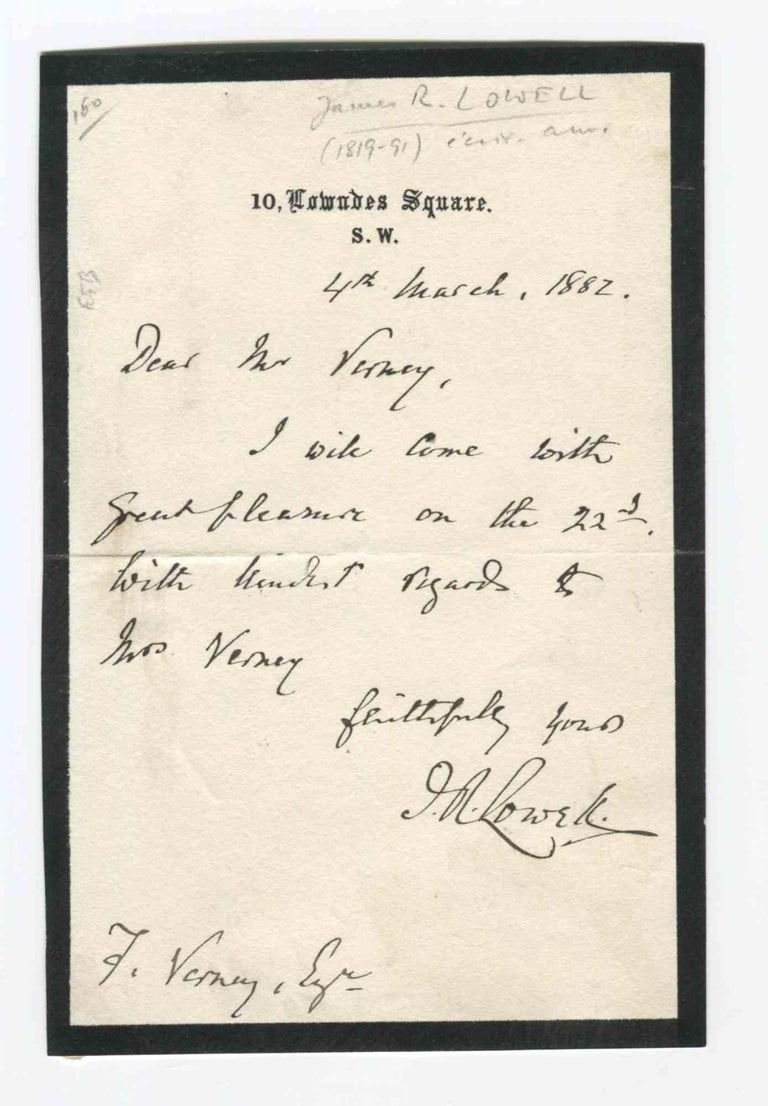 160
James R. LOWELL
(1819-91) écriv. am.
10, Lowndes Square.
S. W.
4th March, 1882.
Dear Mr Verney,
I will come with
great pleasure on the 22d.
With kindest regards to
Mrs Verney
faithfully yours
J. R. Lowell.
F. Verney, Esqre